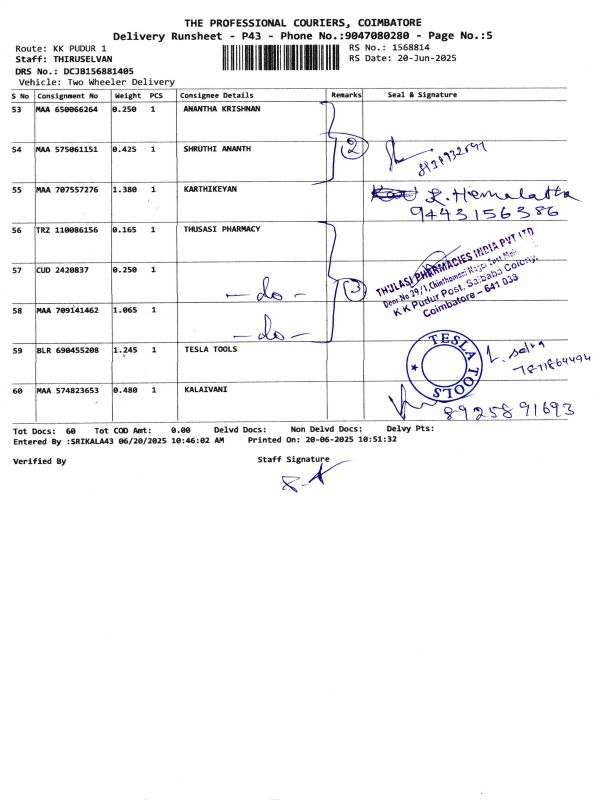 THE PROFESSIONAL COURIERS, COIMBATORE
Delivery Runsheet - P43 - Phone No.:9047080280 - Page No.:5
Route: KK PUDUR 1 RS No.: 1568814
Staff: THIRUSELVAN RS Date: 20-Jun-2025
DRS No.: DCJB156881405
Vehicle: Two Wheeler Delivery
S No Consignment No Weight PCS Consignee Details Remarks Seal & Signature
53 MAA 650066264 0.250 1 ANANTHA KRISHNAN
2
54 MAA 575061151 0.425 1 SHRUTHI ANANTH
55 MAA 707557276 1.380 1 KARTHIKEYAN
R. Hemalatha
9443156386
56 TRZ 110086156 0.165 1 THUSASI PHARMACY
THULASI PHARMACIES INDIA PVT LTD
Door.No 29/1,Chinthamani Nagar East Main
K K Pudur Post, Saibaba Colony,
Coimbatore - 641 038
57 CUD 2420837 0.250 1
- do - 3
58 MAA 709141462 1.065 1
- do -
59 BLR 690455208 1.245 1 TESLA TOOLS
TESLA TOOLS
60 MAA 574823653 0.480 1 KALAIVANI
8925891693
Tot Docs: 60 Tot COD Amt: 0.00 Delvd Docs: Non Delvd Docs: Delvy Pts:
Entered By :SRIKALA43 06/20/2025 10:46:02 AM Printed On: 20-06-2025 10:51:32
Verified By Staff Signature